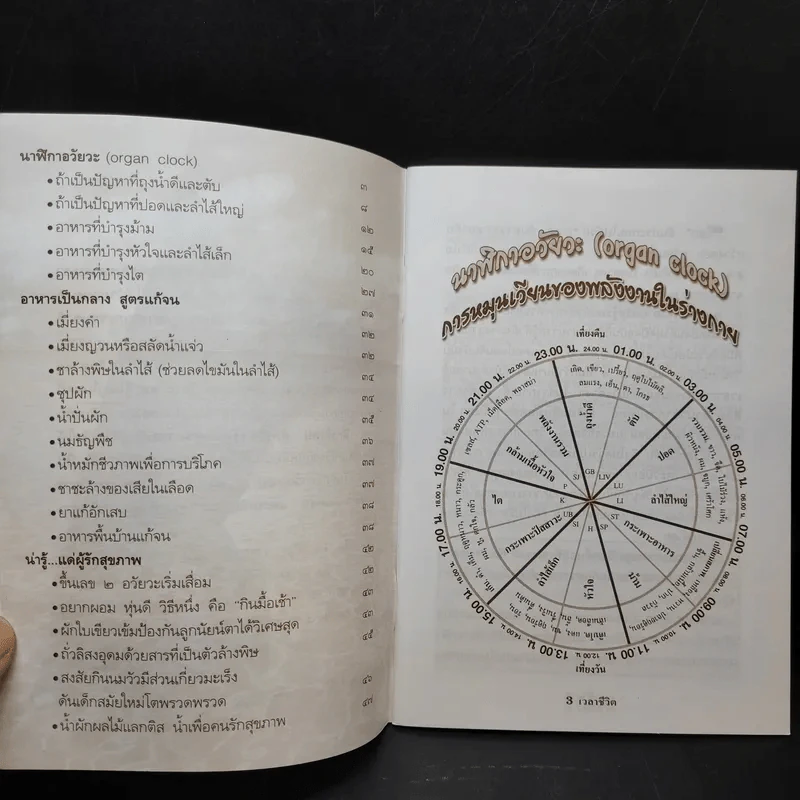 นาฬิกาอวัยวะ (organ clock)
•ถ้าเป็นปัญหาที่ถุงน้ำดีและตับ ๓
•ถ้าเป็นปัญหาที่ปอดและลำไส้ใหญ่ ๘
•อาหารที่บำรุงม้าม ๑๒
•อาหารที่บำรุงหัวใจและลำไส้เล็ก ๑๕
•อาหารที่บำรุงไต ๒๐
๒๗
อาหารเป็นกลาง สูตรแก้จน
•เมี่ยงคำ ๓๑
•เมี่ยงญวนหรือสลัดน้ำแจ่ว ๓๒
•ชาล้างพิษในลำไส้ (ช่วยลดไขมันในลำไส้) ๓๒
•ซุปผัก ๓๔
•น้ำปั่นผัก ๓๔
•นมธัญพืช ๓๕
•น้ำหมักชีวภาพเพื่อการบริโภค ๓๖
•ชาชะล้างของเสียในเลือด ๓๗
•ยาแก้อักเสบ ๓๗
•อาหารพื้นบ้านแก้จน ๓๘
๓๘
น่ารู้...แด่ผู้รักสุขภาพ ๔๒
•ขึ้นเลข ๒ อวัยวะเริ่มเสื่อม ๔๒
•อยากผอม หุ่นดี วิธีหนึ่ง คือ "กินมื้อเช้า" ๔๓
•ผักใบเขียวเข้มป้องกันลูกนัยน์ตาได้วิเศษสุด ๔๕
•ถั่วลิสงอุดมด้วยสารที่เป็นตัวล้างพิษ
•สงสัยกินนมวัวมีส่วนเกี่ยวมะเร็ง ๔๖
ดันเด็กสมัยใหม่โตพรวดพรวด ๔๗
•น้ำผักผลไม้แลกติส น้ำเพื่อคนรักสุขภาพ
นาฬิกาอวัยวะ (organ clock)
การหมุนเวียนของพลังงานในร่างกาย
เที่ยงคืน
23.00 น. 24.00 น. 01.00 น. 02.00 น. 03.00 น. 04.00 น. 05.00 น. 06.00 น. 07.00 น. 08.00 น. 09.00 น. 10.00 น. 11.00 น. 12.00 น. 13.00 น. 14.00 น. 15.00 น. 16.00 น. 17.00 น. 18.00 น. 19.00 น. 20.00 น. 21.00 น. 22.00 น.
ถุงน้ำดี
ตับ
ปอด
ลำไส้ใหญ่
กระเพาะอาหาร
ม้าม
หัวใจ
ลำไส้เล็ก
กระเพาะปัสสาวะ
ไต
กล้ามเนื้อหัวใจ
พลังงานรวม
GB LIV LU LI ST SP H SI UB K P SJ
เที่ยงวัน
3 เวลาชีวิต